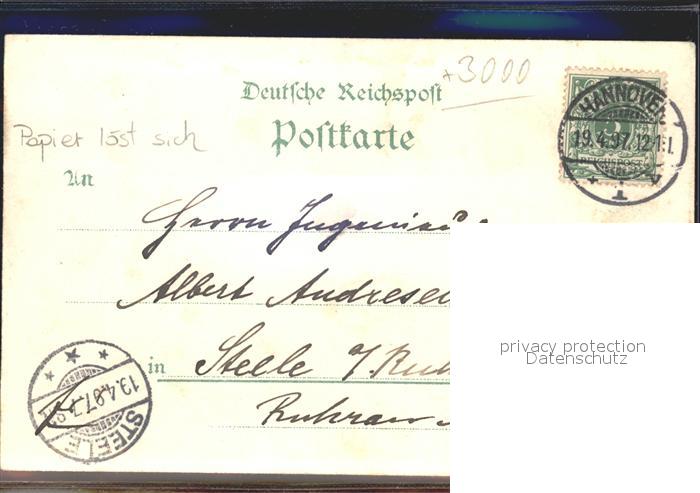 +3000
Deutsche Reichspost
Postkarte
Papier löst sich
HANNOVER
19.4.97.12-1N.
REICHSPOST
1
An
Herrn Ingenieur
Albert Andresen
in Steele a/Ruh
STEELE
19.4.97.7
privacy protection
Datenschutz